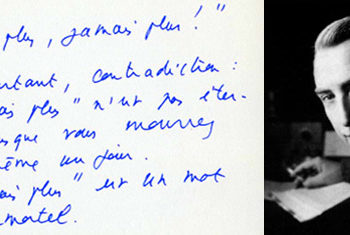 plus, jamais plus ! "
rtant, contradiction :
ais plus " n'est pas éter-
sque vous mourrez
ême un jour.
ais plus " est un mot
mortel.